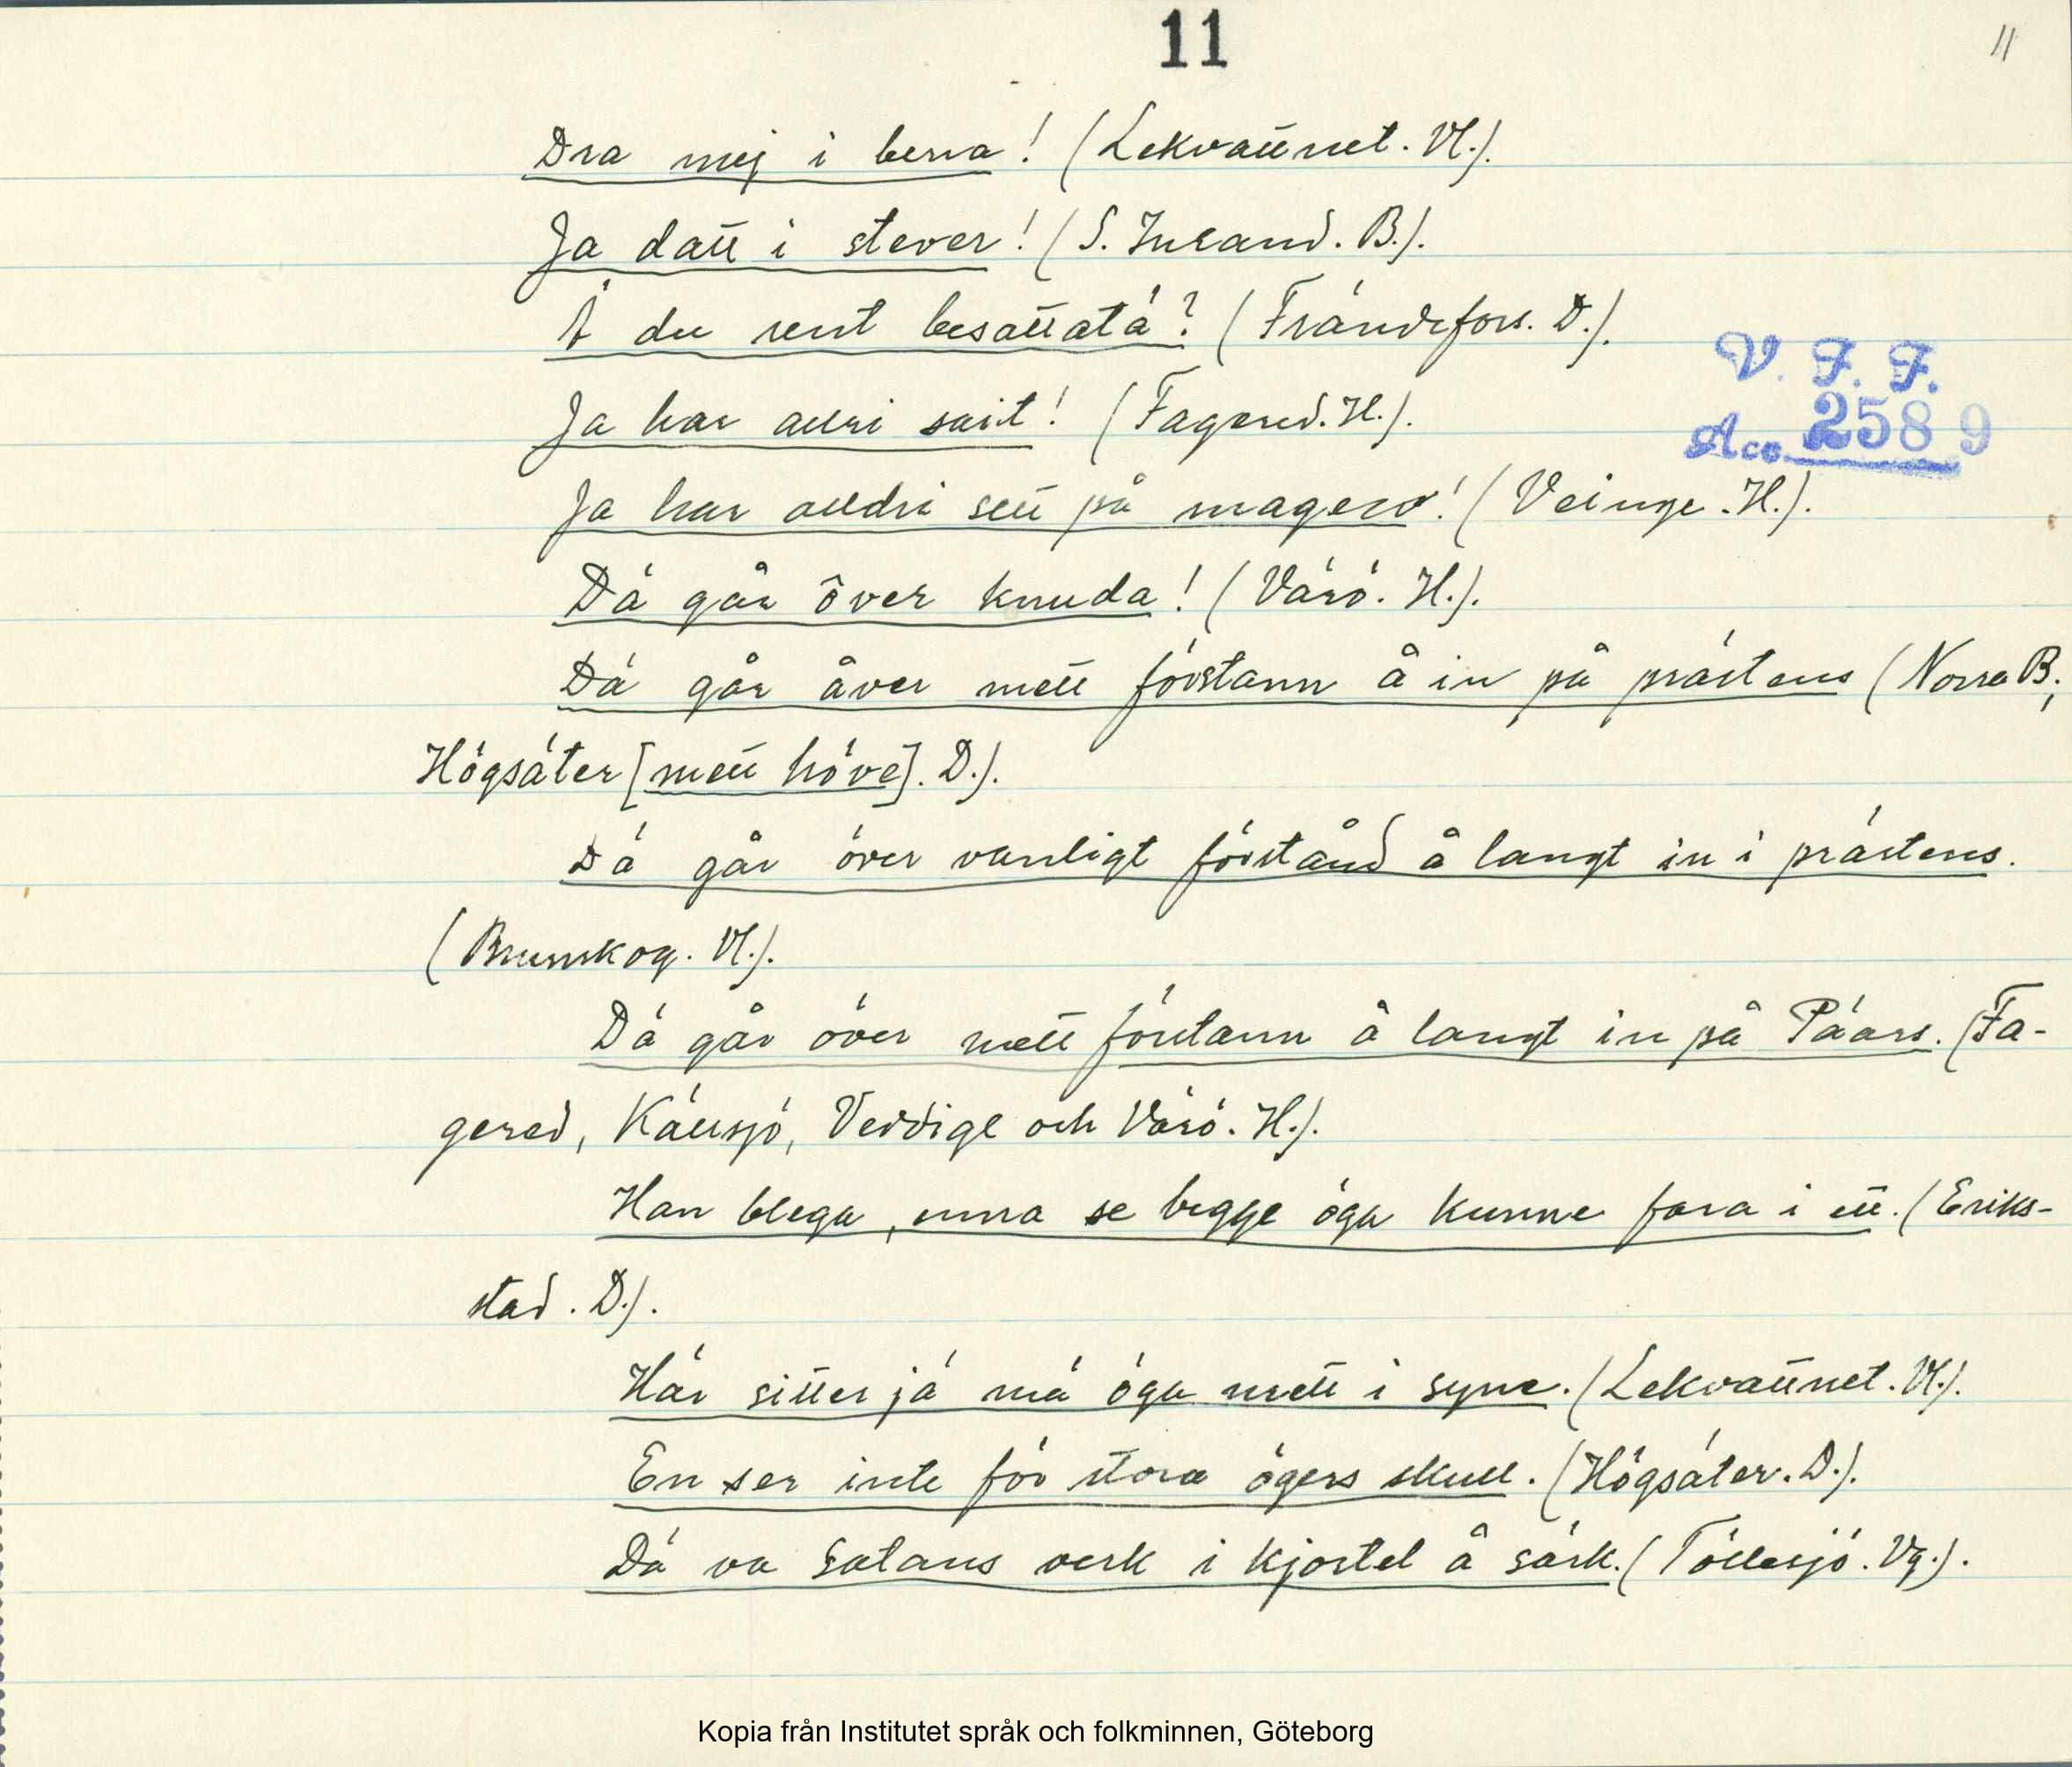 11
11
Dra mej i bena! (Lekvattnet. Vl.).
Ja datt i stever! (S. Inland. B.).
Ä du rent besattatä? (Frändefors. D.).
V. F. F.
Ja har alri sait! (Fagered. H.).
Acc. 2589
Ja har alldri sett på magen! (Veinge. H.).
Dä går över knuda! (Värö. H.).
Dä går åver mett förstann å in på prästens (Norra B.;
Högsäter [mett höve]. D.).
Dä går över vanligt förstånd å langt in i prästens.
(Brunskog. Vl.).
Dä går över mett förstann å langt in på Päars. (Fa-
gered, Källsjö, Veddige och Värö. H.).
Han blega, enna se begge öga kunne fara i ett. (Eriks-
stad. D.).
Här sitter jä mä öga mett i syne. (Lekvattnet. Vl.).
En ser inte för stora ögers skull. (Högsäter. D.).
Dä va Satans verk i kjortel å särk. (Töllesjö. Vg.).
Kopia från Institutet språk och folkminnen, Göteborg